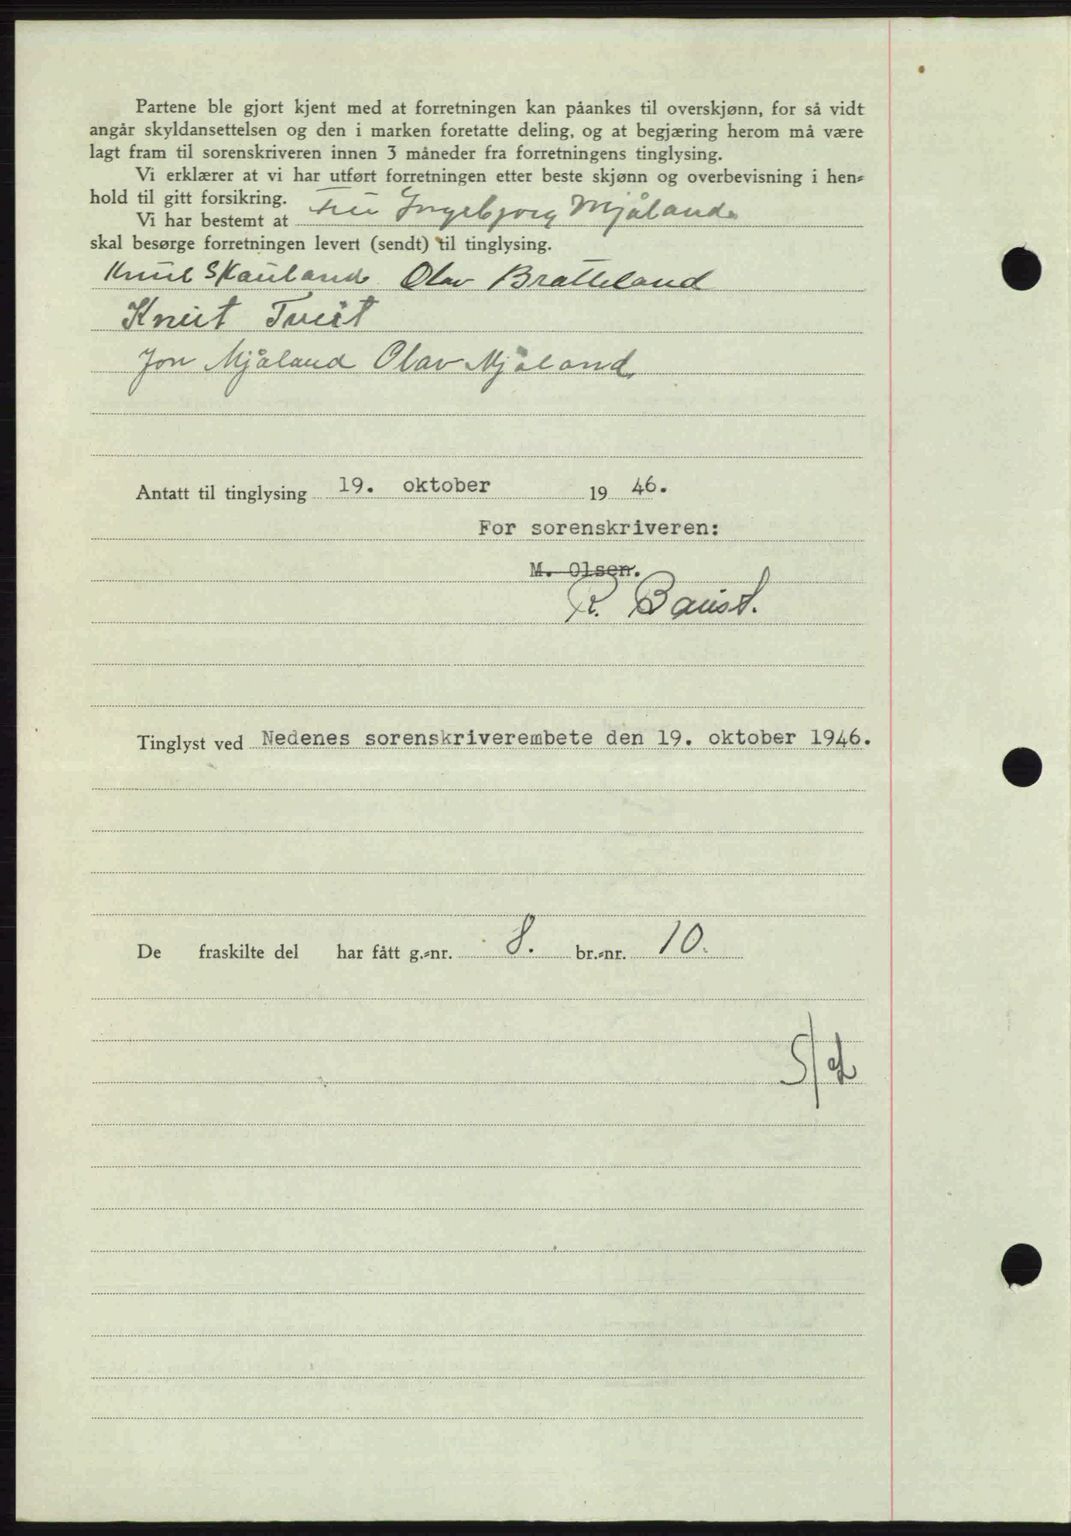 Partene ble gjort kjent med at forretningen kan påankes til overskjønn, for så vidt
angår skyldansettelsen og den i marken foretatte deling, og at begjæring herom må være
lagt fram til sorenskriveren innen 3 måneder fra forretningens tinglysing.
Vi erklærer at vi har utført forretningen etter beste skjønn og overbevisning i hen-
hold til gitt forsikring.
Vi har bestemt at Fru Ingebjorg Mjåland
skal besørge forretningen levert (sendt) til tinglysing.
Knut Skauland Olav Bratteland
Kneut Tveit
Jon Mjåland Olav Mjåland
Antatt til tinglysing 19. oktober 19 46.
For sorenskriveren:
M. Olsen.
R. Baust.
Tinglyst ved Nedenes sorenskriverembete den 19. oktober 1946.
De fraskilte del har fått g.-nr. 8. br.-nr. 10.